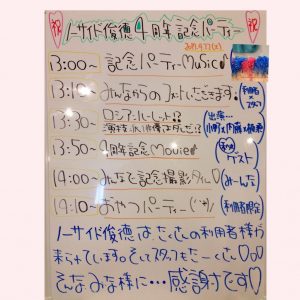 祝 ノーサイド俊徳4周年記念パーティー 祝
13:00～ 記念パーティーMusic♪
13:10～ みんなからのコメントいただきます。
13:30～ ロシアンルーレット!?
13:50～ 4周年記念Movie♪
ゲスト
14:00～ みんなで記念撮影タイム♡ (みーんな)
14:10～ おやつパーティー (利用者限定)
ノーサイド俊徳はたくさんの利用者様が
来られています。そしてスタッフもたーくさん♡♡
そんなみな様に…感謝です♡